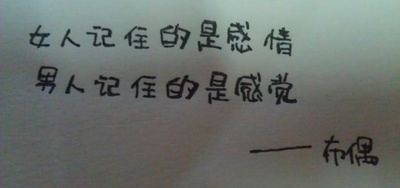 女人记住的是感情
男人记住的是感觉
——布偶